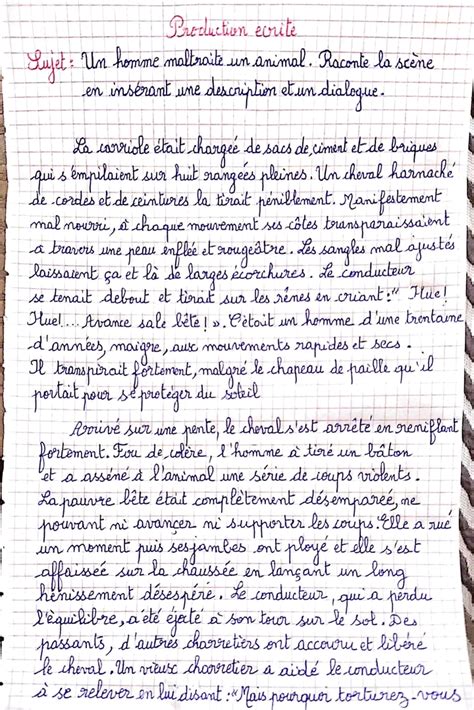 Production ecrite
Sujet : Un homme maltraite un animal. Raconte la scène
en insérant une description et un dialogue.
La carriole était chargée de sacs de ciment et de briques
qui s'empilaient sur huit rangées pleines. Un cheval harnaché
de cordes et de ceintures la tirait péniblement. Manifestement
mal nourri, à chaque mouvement ses côtes transparaissaient
à travers une peau enflée et rougeâtre. Les sangles mal ajustés
laissaient ça et là de larges écorchures. Le conducteur
se tenait debout et tirait sur les rênes en criant : " Hue !
Hue !... Avance sale bête ! ». C'était un homme d'une trentaine
d'années, maigre, aux mouvements rapides et secs.
Il transpirait fortement, malgré le chapeau de paille qu'il
portait pour se protéger du soleil
Arrivé sur une pente, le cheval s'est arrêté en reniflant
fortement. Fou de colère, l'homme a tiré un bâton
et a asséné à l'animal une série de coups violents.
La pauvre bête était complètement désemparée, ne
pouvant ni avancer ni supporter les coups. Elle a rué
un moment puis ses jambes ont ployé et elle s'est
affaissée sur la chaussée en lançant un long
hénissement désespéré. Le conducteur, qui a perdu
l'équilibre, a été éjecté à son tour sur le sol. Des
passants, d'autres charretiers ont accouru et libéré
le cheval. Un vieux charretier a aidé le conducteur
à se relever en lui disant : "Mais pourquoi torturez-vous